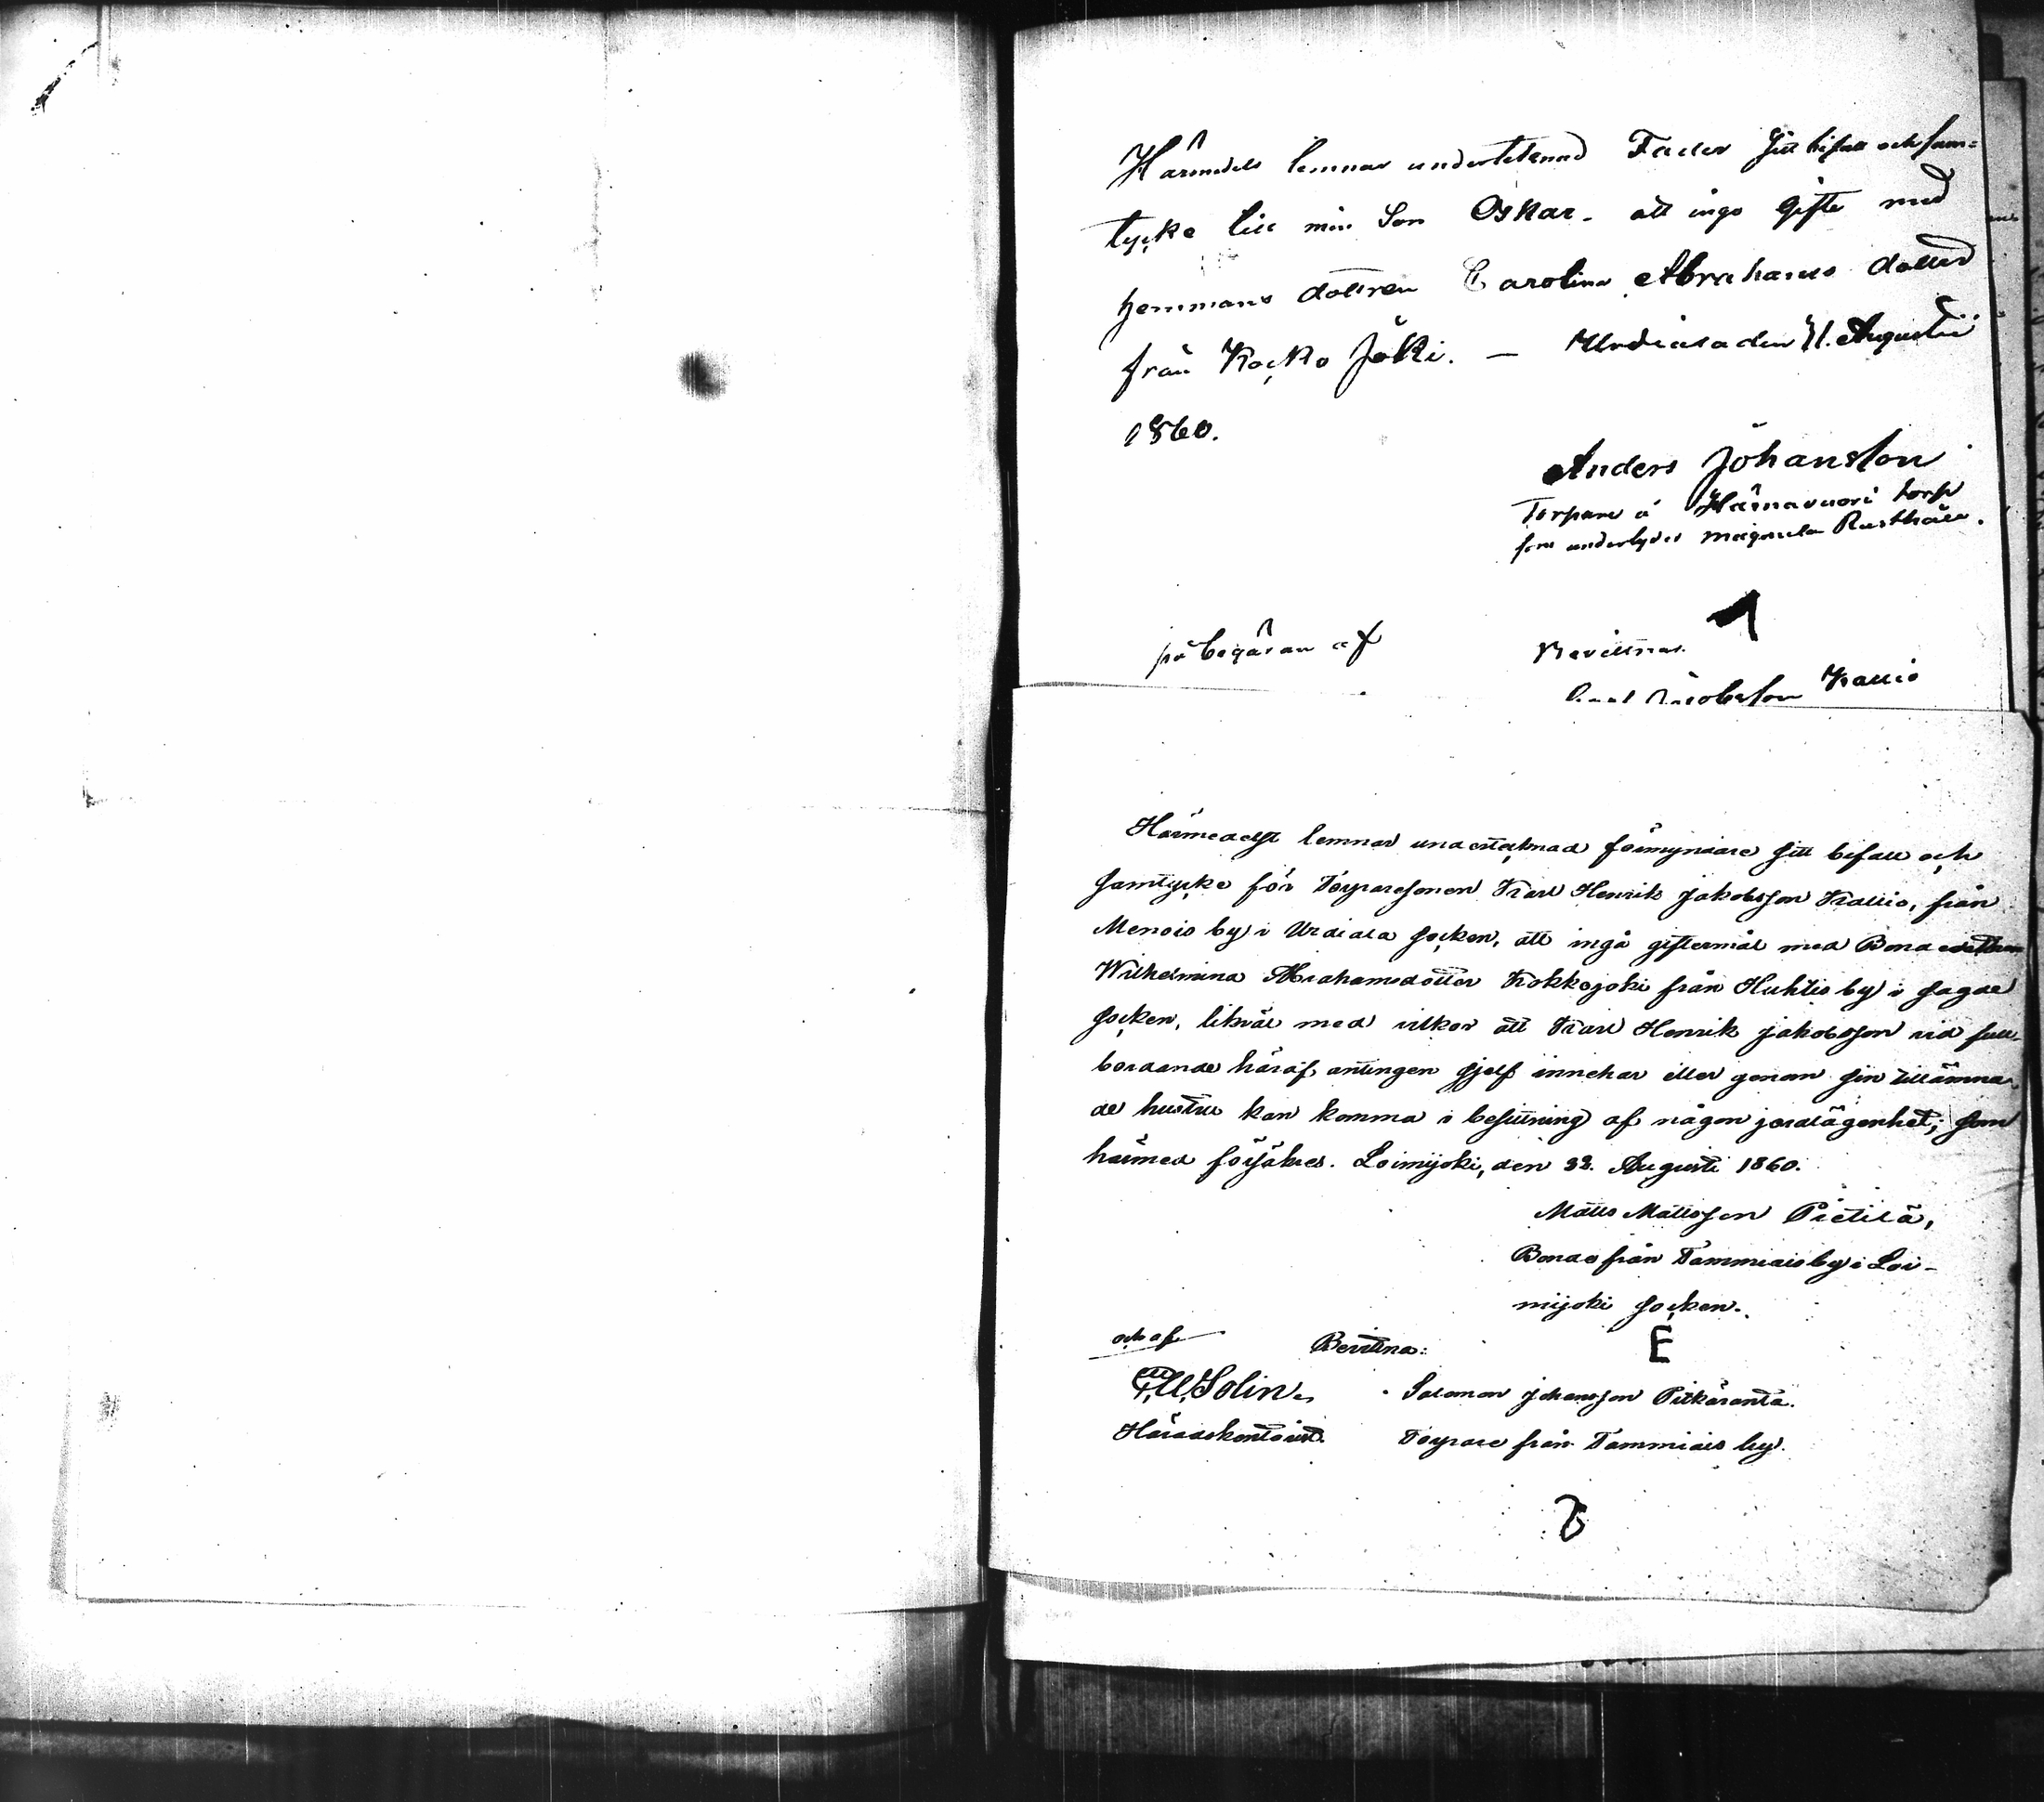 Härmedels lemnar undertecknad Fader sitt bifall och sam=
tycke till min Son Oskar. att ingå Gifte med
hemmans dottren Carolina Abrahams dotter
från Kocko Joki. — Urdiala den 11. Augustii
1860.
Anders Johansson
Torpare å Härnavuori torp
som underlyder Rusthåll.
på begäran af
Bevittnar.
Jacobsson Kallio
Härmedelst lemnar undertecknad förmyndare sitt bifall och
samtycke för Torparesonen Karl Henrik Jakobsson Kallio, från
Menois by i Urdiala socken, att ingå giftermål med Bonadottren
Wilhelmina Abrahamsdotter Kokkojoki från Huhtis by i sagde
socken, likväl med vilkor att Karl Henrik Jakobsson vid full-
bordande häraf, antingen sjelf innehar eller genom sin tillämna-
de hustru kan komma i besittning af någon jordlägenhet; som
härmed försäkres. Loimijoki, den 22. Augusti 1860.
Matts Mattsson Pietilä,
Bonde från Tammiais by i Loi-
mijoki socken.
och af
Bevittna:
E
Solin,
Salomon Johansson Pitkäranta.
Häradskontorist.
Torpare från Tammiais by.